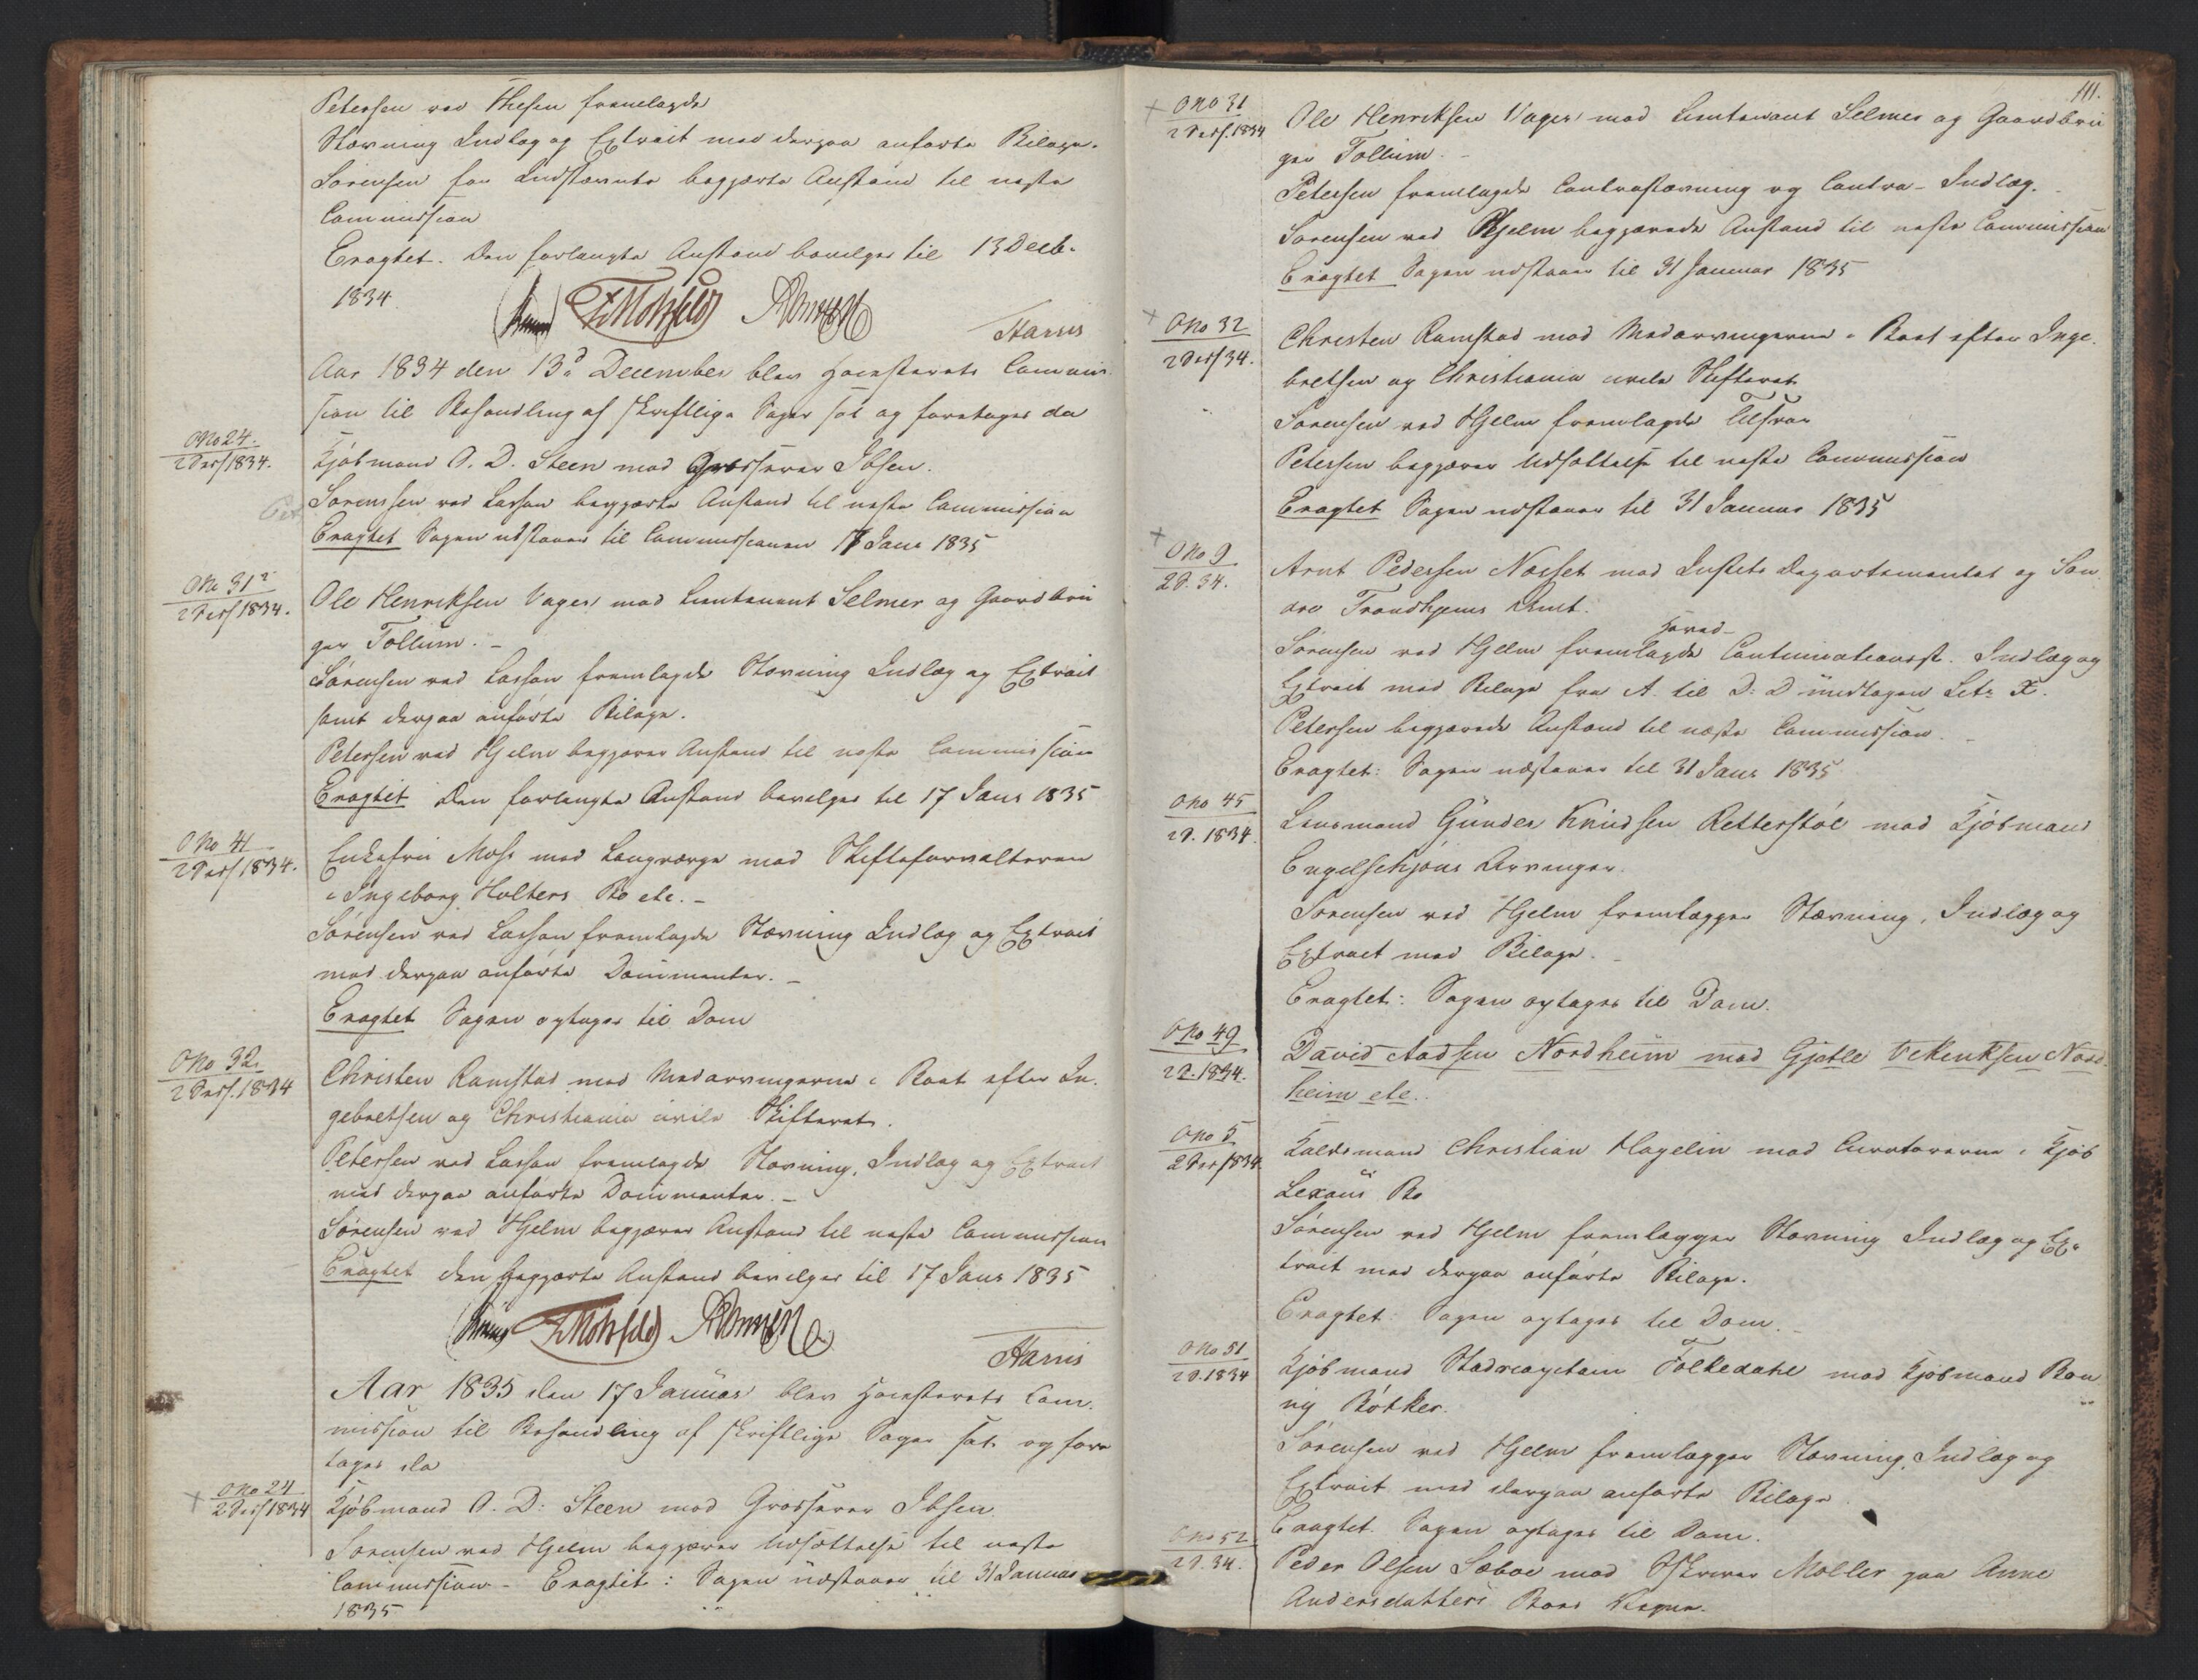 Petersen ved Thesen fremlagde
Stævning Indlæg og Extrait med derpaa anførte Bilage.
Sørensen for Indstævnte begjærte Anstand til næste
Commission
Eragtet. Den forlangte Anstand bevilges til 13 Decb.
1834.
F Motzfeldt
Harris
Aar 1834 den 13de December blev Høiesterets Commis
sion til Behandling af skriftlige Sager sat og foretages da
O No 24.
2 Sess/1834.
Kjøbmand O. D. Steen mod Grosserer Ibsen.
Sørenssen ved Lasson begjærte Anstand til næste Commission
Eragtet Sagen udstaaer til Commissionen 17 Janr 1835
O No 31
2 Sess/1834.
Ole Henriksen Vager mod Lieutenant Selmer og Gaardbru
ger Tollum. -
Sørensen ved Lasson fremlagde Stævning Indlæg og Extrait
samt derpaa anførte Bilage.
Petersen ved Hjelm begjærer Anstand til næste Commission
Eragtet Den forlangte Anstand bevilges til 17 Janr 1835
O No 41
2 Sess/1834.
Enkefru Moss med Laugværge mod Skifteforvalteren
i Ingeborg Holters Bo etc. -
Sørensen ved Lasson fremlagde Stævning Indlæg og Extrait
med derpaa anførte Documenter. -
Eragtet Sagen optages til Dom
O No 32.
2 Sess/.1834
Christen Ramstad mod Medarvingerne i Boet efter In-
gebretsen og Christiania civile Skifteret.
Petersen ved Lasson fremlagde Stævning, Indlæg og Extrait
med derpaa anførte Documenter. -
Sørensen ved Hjelm begjærer Anstand til næste Commission
Eragtet den begjærte Anstand bevilges til 17 Janr 1835
F Motzfeldt
Harris
Aar 1835 den 17 Januar blev Høiesterets Com-
mission til Behandling af skriftlige Sager sat og fore
tages da
O No 24
2 Sess/1834
Kjøbmand O. D: Steen mod Grosserer Ibsen
Sørensen ved Hjelm begjærer Udsættelse til næste
Commission - Eragtet: Sagen udstaaer til 31 Januar
1835
111.
O No 31
2 Sess/.1834
Ole Henriksen Vager mod Lieutenant Selmer og Gaardbru
ger Tollum. -
Petersen fremlagde Contrastævning og Contra-Indlæg.
Sørensen ved Hjelm begjærede Anstand til næste Commission
Eragtet Sagen udstaaer til 31 Januar 1835
O No 32
2 Sess/34.
Christen Ramstad mod Medarvingerne i Boet efter Inge-
bretsen og Christiania civile Skifteret
Sørensen ved Hjelm fremlagde Tilsvar
Petersen begjærer Udsættelse til næste Commission
Eragtet Sagen udstaaer til 31 Januar 1835
O No 9
2 S. 34.
Arnt Pedersen Næsset mod Justits Departementet og Søn
dre Trondhjems Amt.
Hoved-
Sørensen ved Hjelm fremlagde Continuationsst. Indlæg og
Extrait med Bilage fra A. til D: D undtagen Litr X.
Petersen begjærede Anstand til næste Commission. -
Eragtet: Sagen udstaaer til 31 Janr 1835
O No 45
2 S. 1834.
Lensmand Gunder Knudsen Retterstøl mod Kjøbmand
Engelschjøns Arvinger.
Sørensen ved Hjelm fremlægger Stævning, Indlæg og
Extract med Bilage. -
Eragtet: Sagen optages til Dom.
O No 49
2 S. 1834.
David Aadsen Nordheim mod Gjetle Vekenksen Nord
heim etc.
O No 5
2 Sess/1834
Kaldsmand Christian Hagelin mod Curatorerne i Kjøb
Lexaus Bo
Sørensen ved Hjelm fremlægger Stævning Indlæg og Ex-
trait med derpaa anførte Bilage.
Eragtet: Sagen optages til Dom. -
O No 51
2 S. 1834
Kjøbmand Stadscapitain Folkedahl mod Kjøbmand Ron
nÿ Bøtker.
Sørensen ved Hjelm fremlægger Stævning, Indlæg og
Extrait med derpaa anførte Bilage.
Eragtet. Sagen optages til Dom.
O No 52
2 S. 34.
Peder Olsen Sæboe mod Møller paa Anne
Andersdatters Boes Vegne.